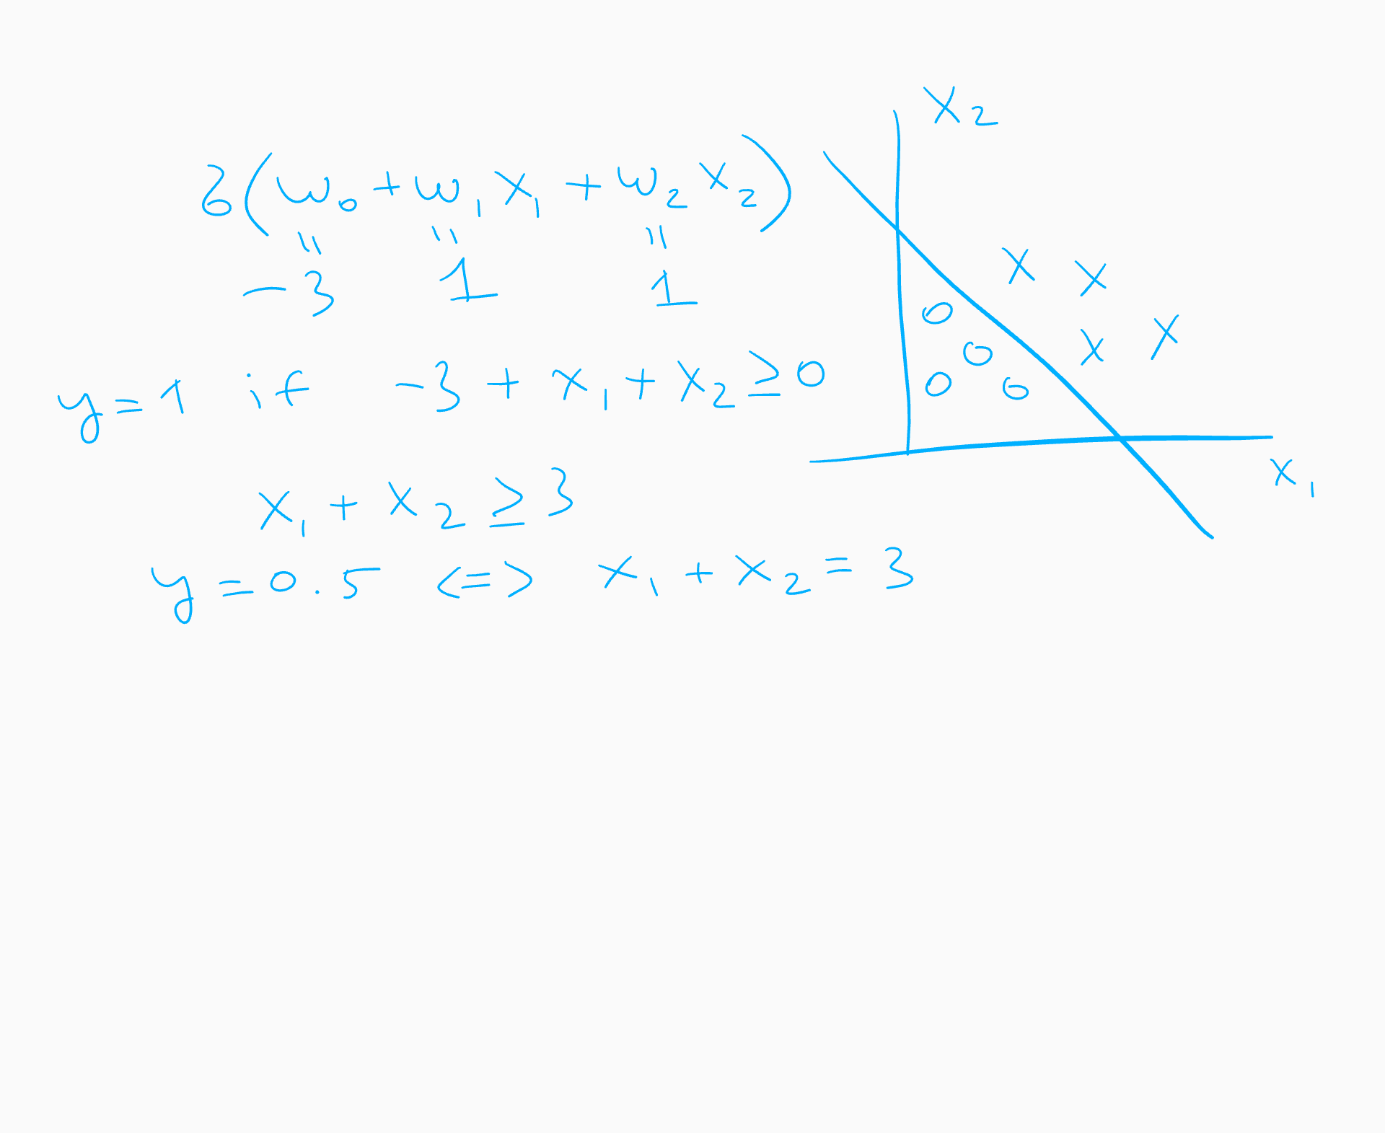 б(w₀ + w₁ x₁ + w₂ x₂)
= = =
-3 1 1
y = 1 if -3 + x₁ + x₂ ≥ 0
x₁ + x₂ ≥ 3
y = 0.5 <=> x₁ + x₂ = 3
x₂
x x
o
o x x
o o
x₁